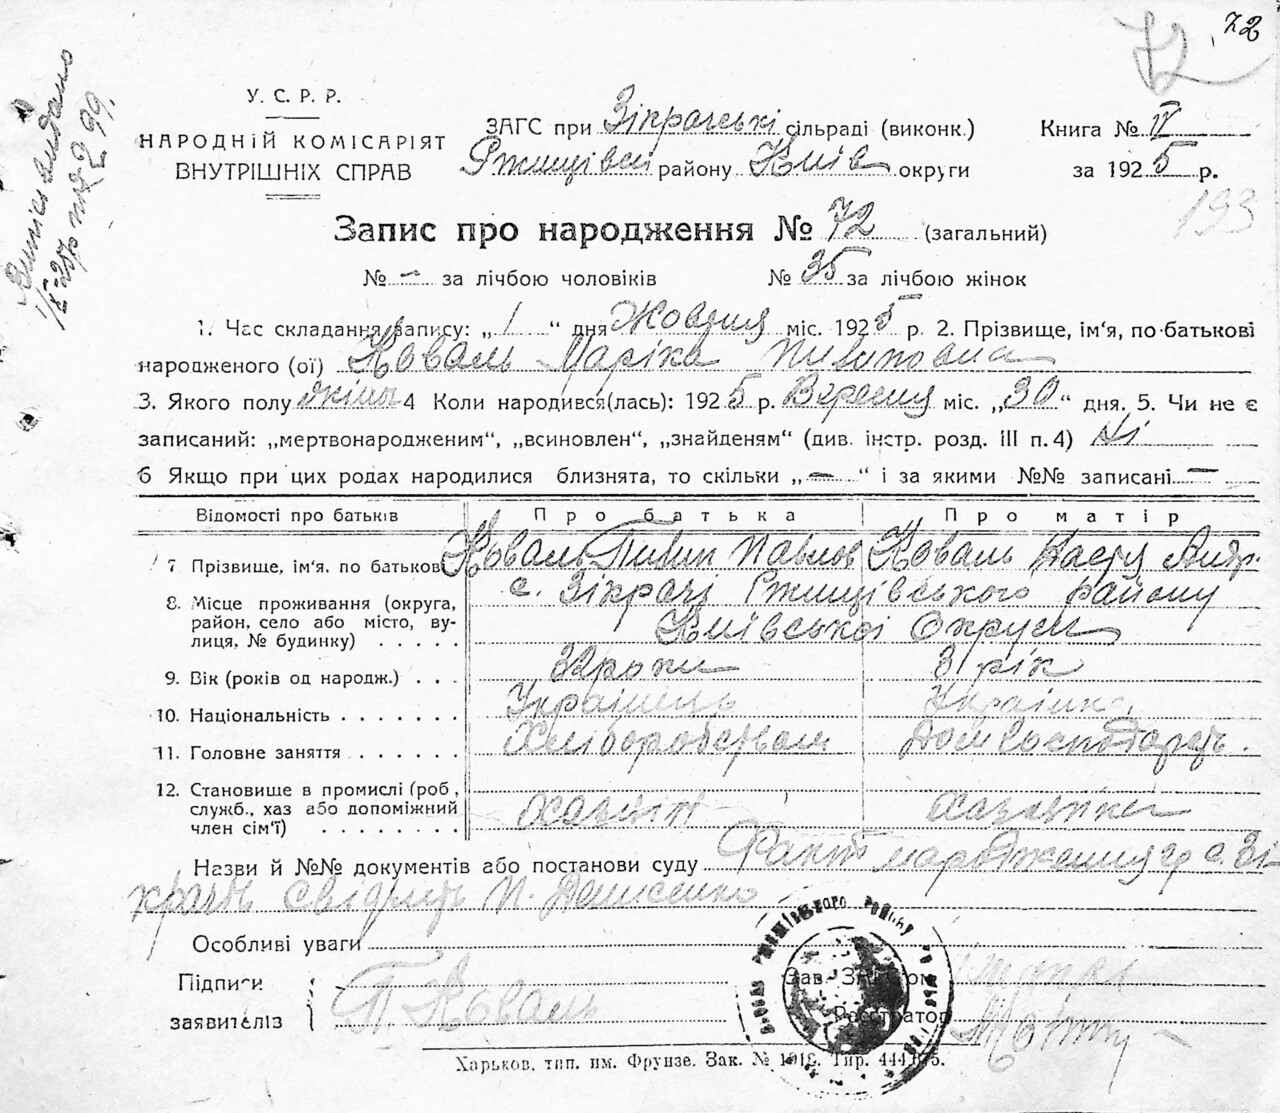 72
72
У. С. Р. Р.
НАРОДНІЙ КОМІСАРІЯТ
ВНУТРІШНІХ СПРАВ
ЗАГС при Зікрачські сільраді (виконк.)
Ржищівськ району Київ округи
Книга № IV
за 1925 р.
193
Запис про народження № 72 (загальний)
№ — за лічбою чоловіків № 35 за лічбою жінок
1. Час складання запису: „1“ дня Жовтня міс. 1925 р. 2. Прізвище, ім‘я, по-батькові
народженого (ої) Коваль Маріка Пилиповна
3. Якого полу жіноч 4 Коли народився(лась): 1925 р. Вересня міс. „30“ дня. 5. Чи не є
записаний: „мертвонародженим“, „всиновлен“, „знайденям“ (див. інстр. розд. III п. 4) Ні
6 Якщо при цих родах народилися близнята, то скільки „—“ і за якими №№ записані —
Відомості про батьків Про батька Про матір
7. Прізвище, ім‘я, по батькові Коваль Пилип Павлов Коваль Настя Андр.
8. Місце проживання (округа, с. Зікрачі Ржищівського району
район, село або місто, ву- Київської Округи
лиця, № будинку)
9. Вік (років од народж.) 32 роки 3 рік
10. Національність Українець Українка
11. Головне заняття Хліборобством Дом господарств.
12. Становище в промислі (роб.,
служб., хаз або допоміжний Хазяїн Хазяйка
член сім‘ї)
Назви й №№ документів або постанови суду Факт народження гр с. Зі-
крачів свідчить П. Денисенко
Особливі уваги
Підписи
заявителів П. Коваль
Зав. ЗАГСом
Реєстратор
Харьков, тип. им. Фрунзе. Зак. № 1918. Тир. 444.875.